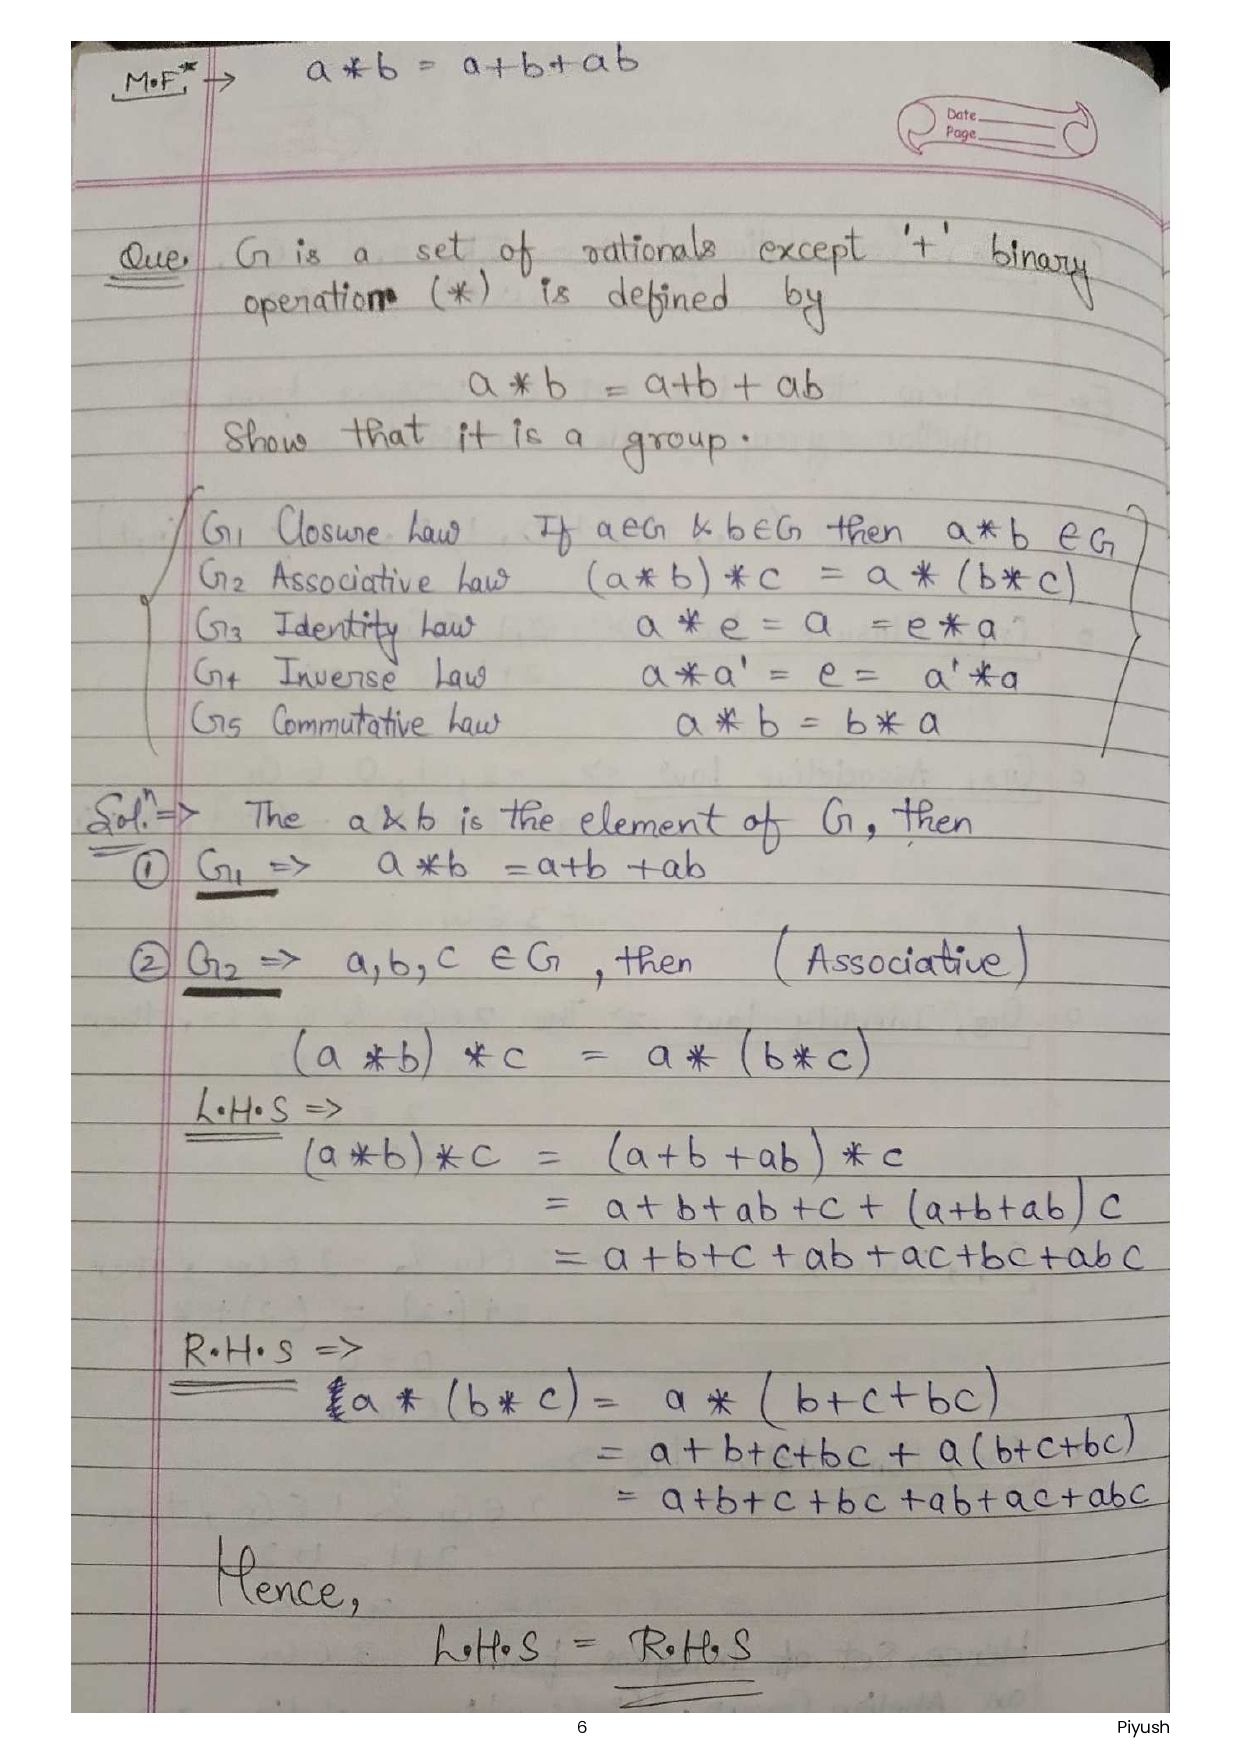 M.F.* → a * b = a+b+ab
Date
Page
Que. G is a set of rationals except '+' binary
operation (*) is defined by
a * b = a+b + ab
Show that it is a group.
G1 Closure Law If a∈G & b∈G then a*b ∈G
G2 Associative Law (a*b)*c = a*(b*c)
G3 Identity Law a*e = a = e*a
G4 Inverse Law a*a' = e = a'*a
G5 Commutative Law a*b = b*a
Solⁿ. => The a & b is the element of G, then
① G1 => a*b = a+b +ab
② G2 => a,b,c ∈G, then (Associative)
(a*b)*c = a*(b*c)
L.H.S =>
(a*b)*c = (a+b+ab)*c
= a+b+ab+c+(a+b+ab)c
= a+b+c+ab+ac+bc+abc
R.H.S =>
a*(b*c) = a*(b+c+bc)
= a+b+c+bc + a(b+c+bc)
= a+b+c+bc+ab+ac+abc
Hence,
L.H.S = R.H.S
6 Piyush